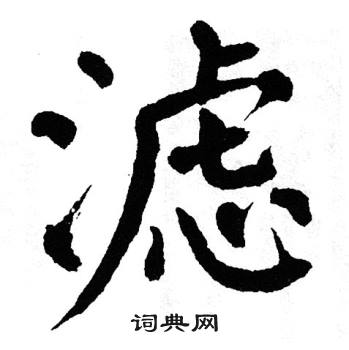 滤
词典网